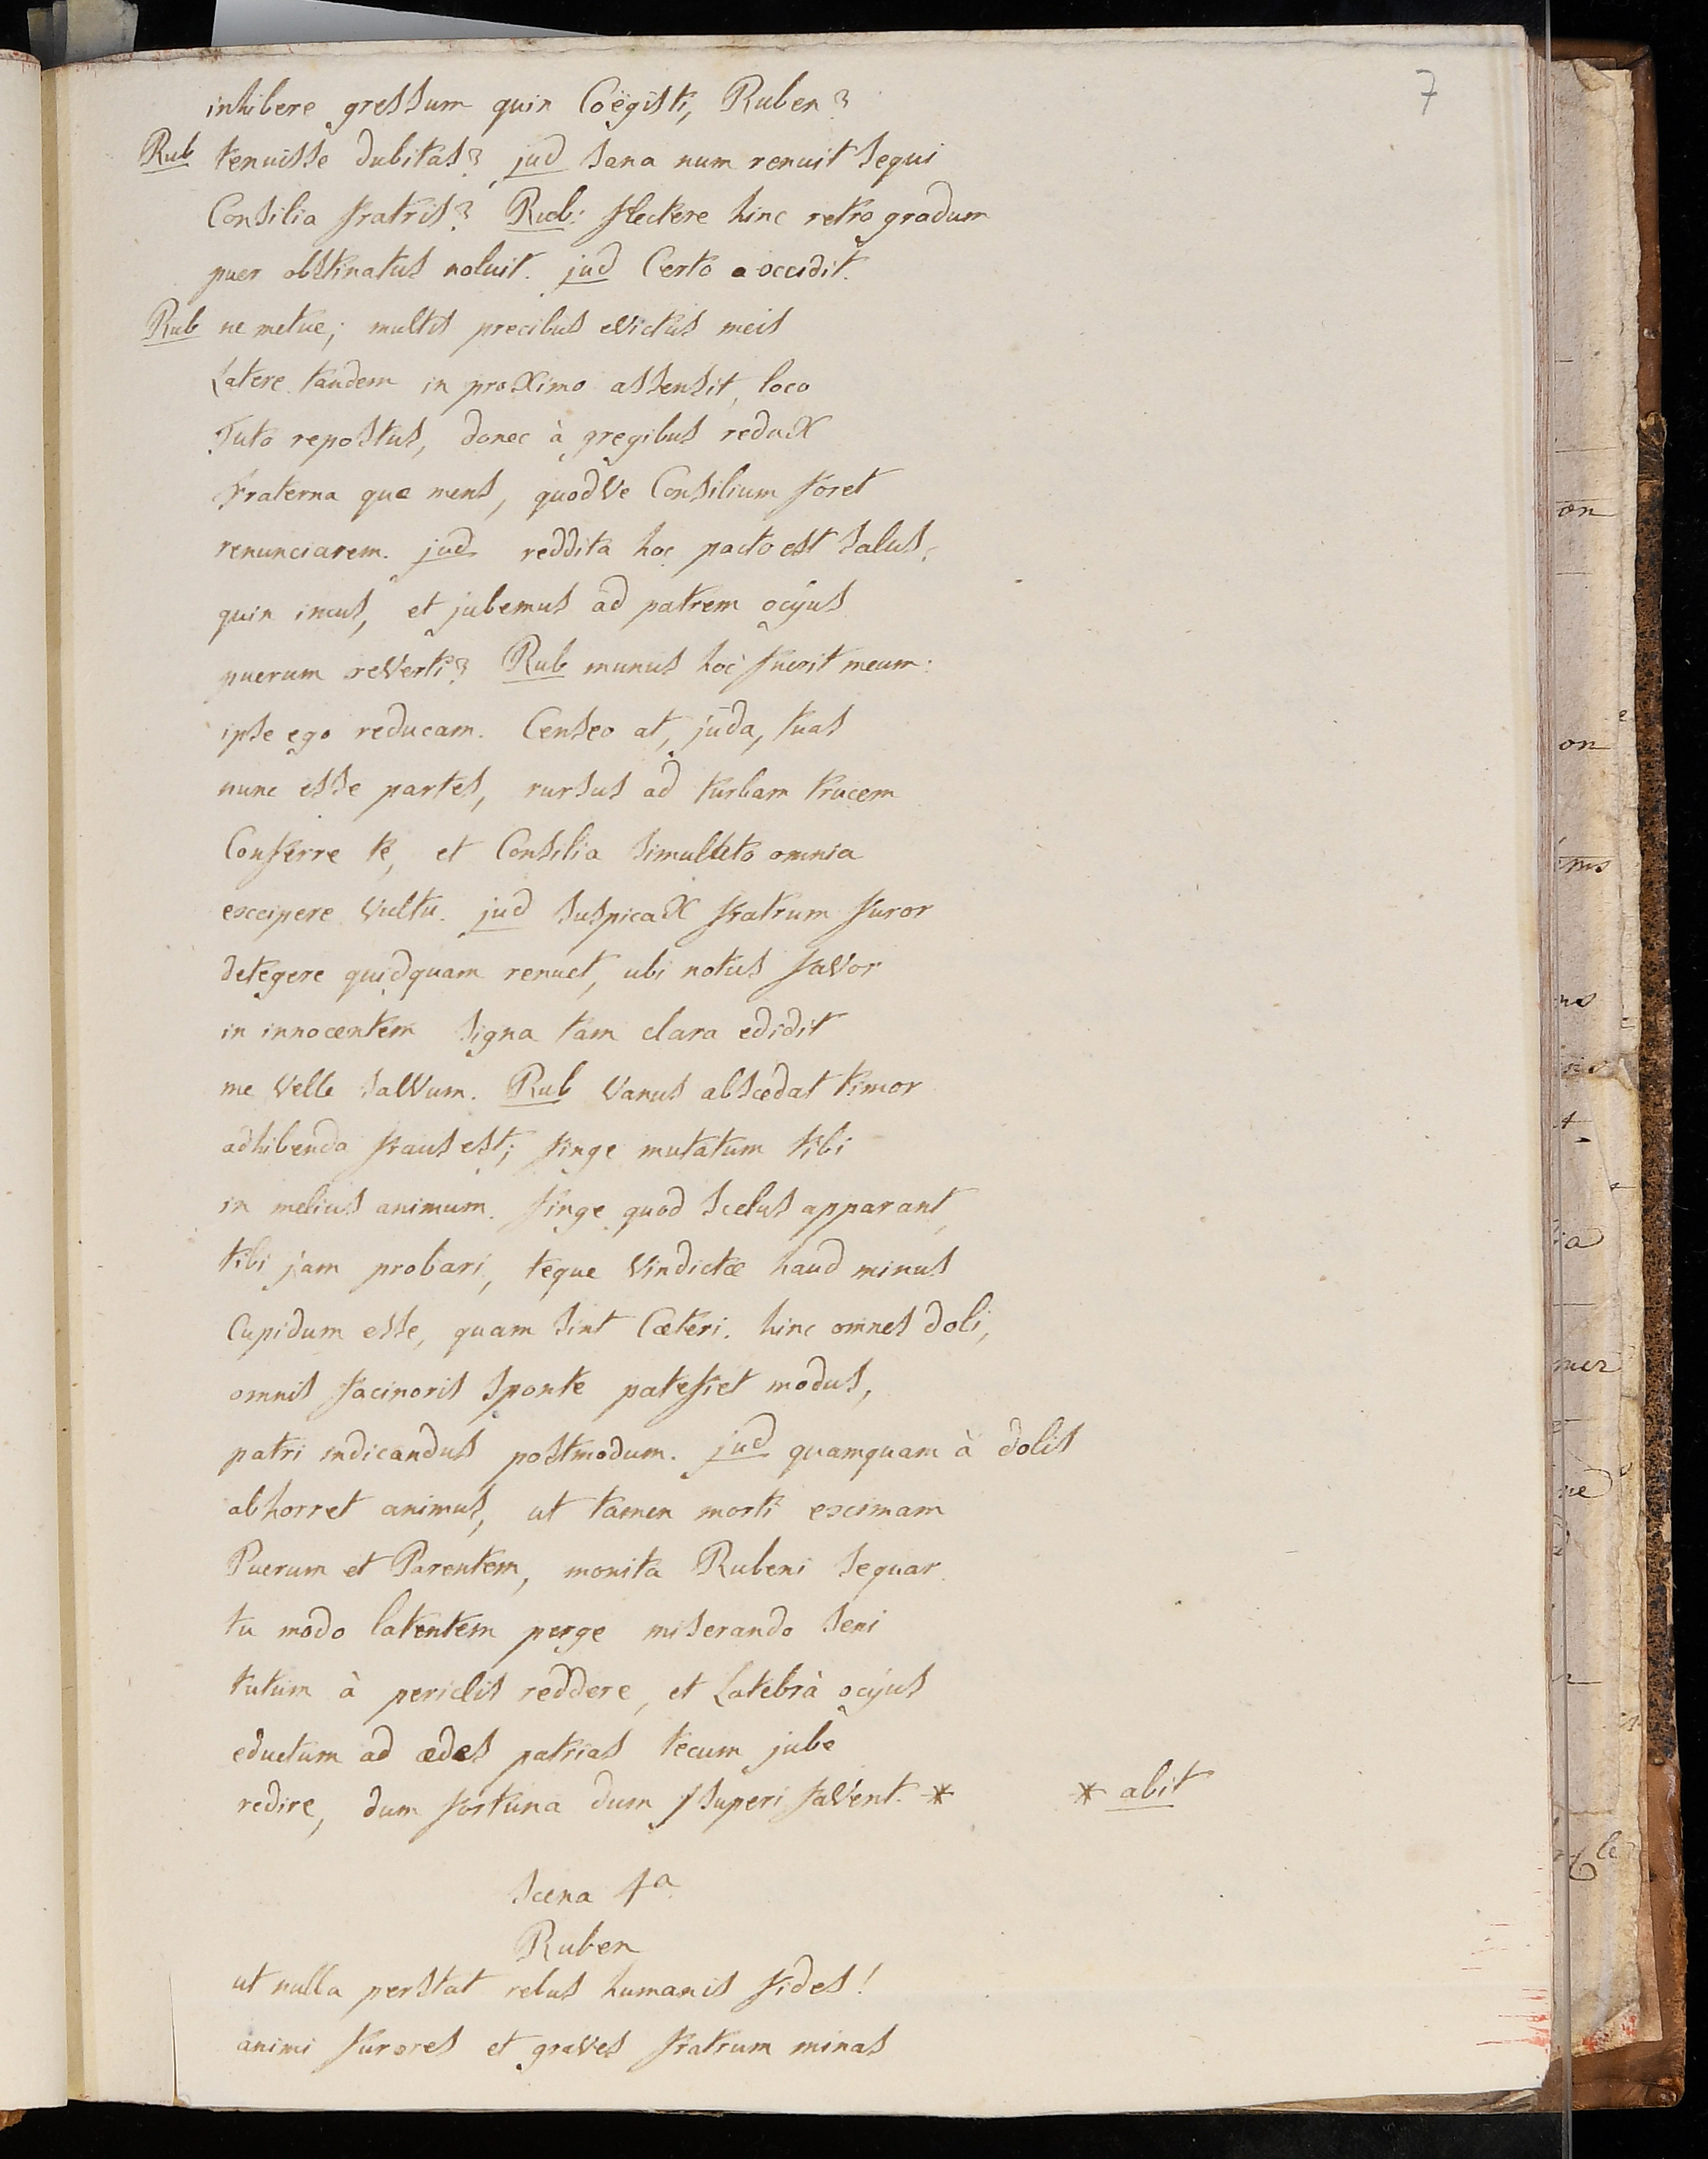 7
inhibere gressum quin Coëgisti, Ruben?
Rub tenuisse dubitas? jud sana num renuit sequi
Consilia fratris? Rub: flectere hinc retro gradum
puer obstinatus noluit. jud Certo occidit.
Rub ne metue; multis precibus evictus meis
Latere tandem in proximo assensit, loco
Tuto repostus, donec à gregibus redux
fraterna quæ mens, quodve Consilium foret
renunciarem. jud reddita hoc pacto est salus;
quin imus, et jubemus ad patrem ocyus
puerum reverti? Rub munus hoc fuerit meum:
ipse ego reducam. Censeo at, juda, tuas
nunc esse partes, rursus ad turbam trucem
Conferre te, et Consilia simulato omnia
excipere vultu. jud suspicax fratrum furor
detegere quidquam renuet, ubi notus favor
in innocentem signa tam clara edidit
me velle salvum. Rub vanus abscedat timor
adhibenda fraus est; finge mutatum tibi
in melius animum. finge quod scelus apparant,
tibi jam probari, teque vindictæ haud minus
Cupidum esse, quam sint Cæteri. hinc omnes doli,
omnis facinoris sponte patefiet modus,
patri indicandus postmodum. jud quamquam à dolis
abhorret animus, ut tamen morti eximam
Puerum et Parentem, monita Rubeni sequar.
tu modo latentem perge miserando seni
tutum à periclis reddere, et Latebrà ocyus
eductum ad ædes patrias tecum jube
redire, dum fortuna dum superi favent. * * abit
Scena 4a
Ruben
ut nulla perstat rebus humanis fides!
animi furores et graves fratrum minas